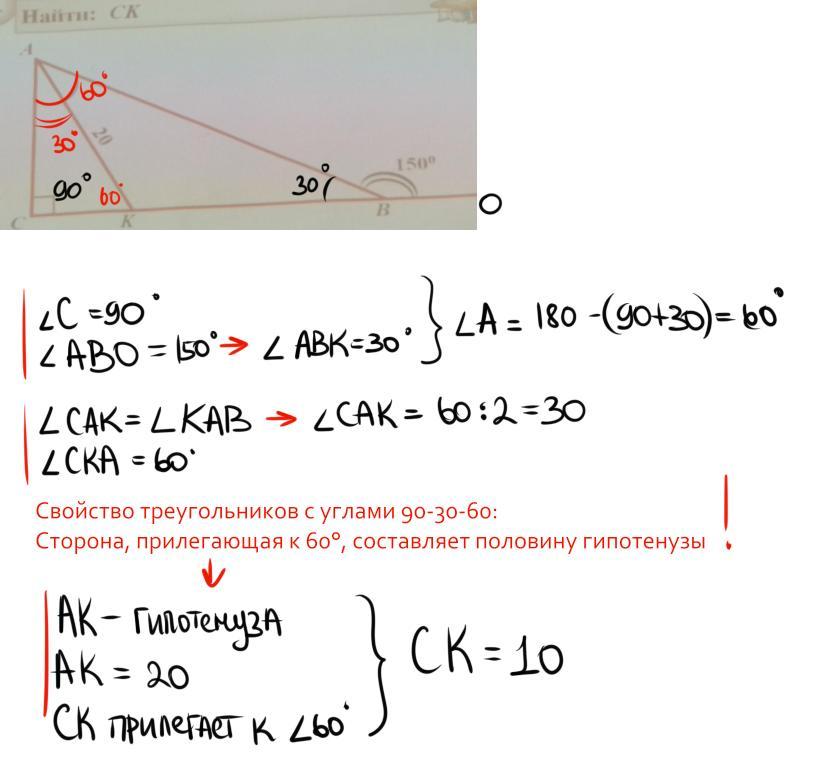 Найти: CK
A
60°
30°
20
90°
60°
30°
150°
C
K
B
O
∠C = 90°
∠ABO = 150° → ∠ABK=30° } ∠A = 180 -(90+30)= 60°
∠CAK = ∠KAB → ∠CAK = 60:2 = 30
∠CKA = 60°
Свойство треугольников с углами 90-30-60:
Сторона, прилегающая к 60°, составляет половину гипотенузы !
AK – гипотенуза
AK = 20
CK прилегает к ∠60°
} CK = 10